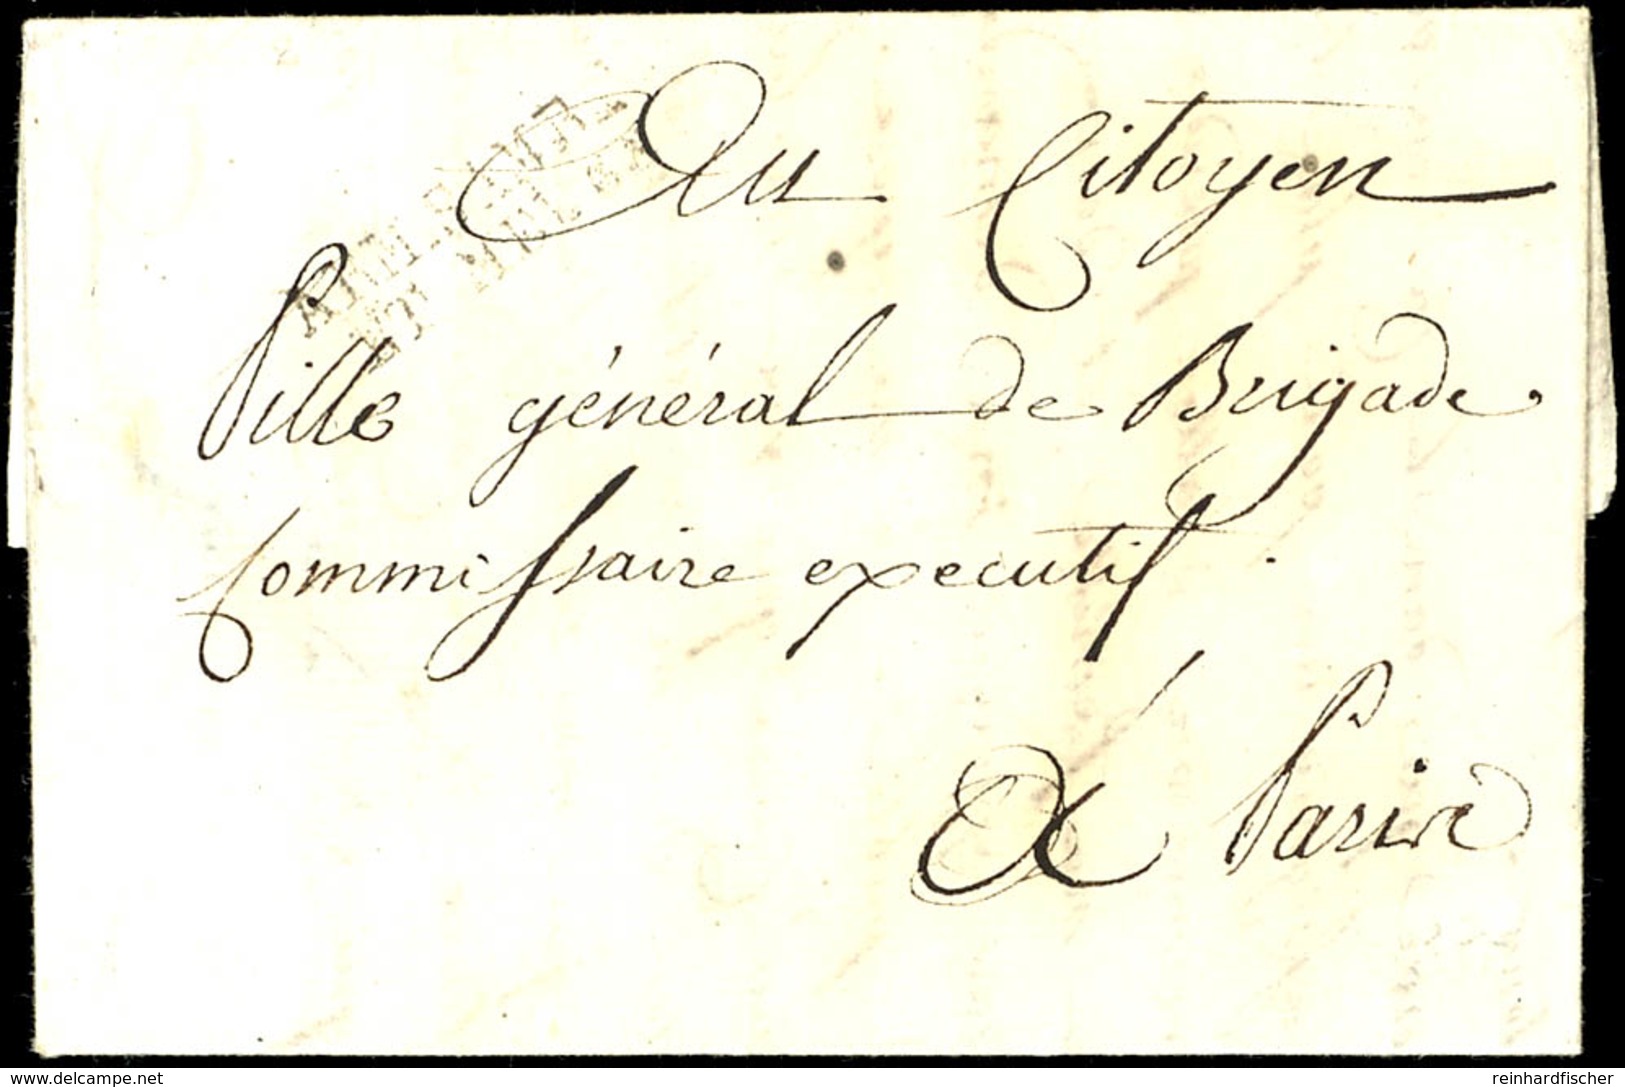 Au Citoyen
Pille général de Brigade
Commissaire executif
A Paris
delcampe.net
reinhardfischer